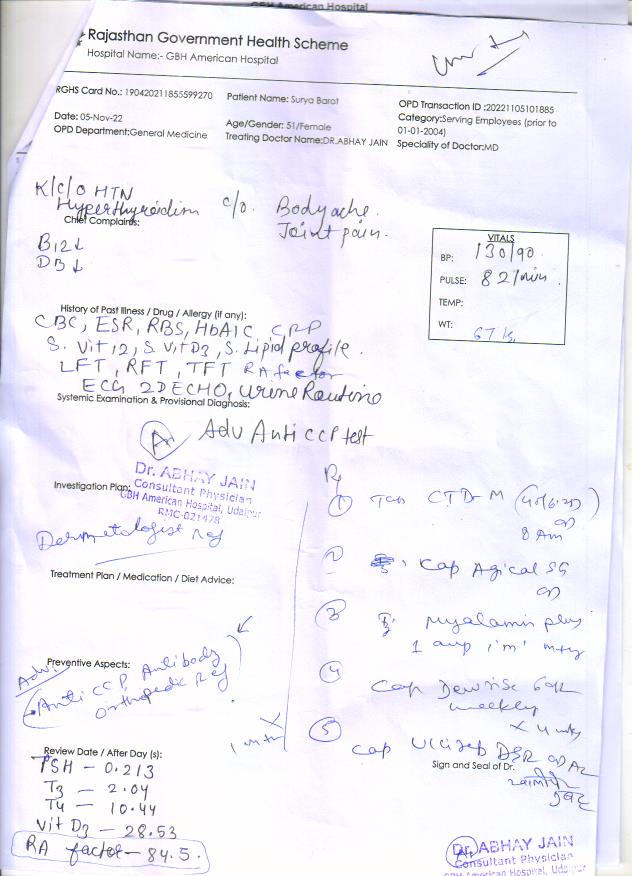 GBH American Hospital
Rajasthan Government Health Scheme
Hospital Name:- GBH American Hospital
RGHS Card No.: 190420211855599270
Patient Name: Surya Barot
OPD Transaction ID :20221105101885
Category:Serving Employees (prior to 01-01-2004)
Date: 05-Nov-22
Age/Gender: 51/Female
OPD Department:General Medicine
Treating Doctor Name:DR.ABHAY JAIN
Speciality of Doctor:MD
K/C/O HTN
Hyperthyroidism
c/o. Bodyache.
Joint pain.
Chief Complains:
B12↓
DB↓
VITALS
BP: 130/90
PULSE: 82/min
TEMP:
WT: 67 k
History of Past Illness / Drug / Allergy (if any):
CBC, ESR, RBS, HbA1C, CRP
S. Vit 12, S. Vit D3, S. Lipid profile.
LFT, RFT, TFT RA factor
ECG 2DECHO, Urine Routine
Systemic Examination & Provisional Diagnosis:
Adv Anti CCP test
Dr. ABHAY JAIN
Consultant Physician
GBH American Hospital, Udaipur
RMC-021478
Investigation Plan:
Dermetologist Ref
Treatment Plan / Medication / Diet Advice:
Rx
① Tab CTD-M
8 Am
② Cap Agical SG
③ Myalamin plus
1 amp i'm'
④ Cap Dewrise 60k
weekly
x 4 wks
⑤ Cap DSR
Preventive Aspects:
Adv.
Anti CCP Antibody
Orthopedic Ref
Review Date / After Day (s):
TSH – 0.213
T3 – 2.04
T4 – 10.44
Vit D3 – 28.53
RA factor – 84.5.
Sign and Seal of Dr.
Dr. ABHAY JAIN
Consultant Physician
GBH American Hospital, Udaipur